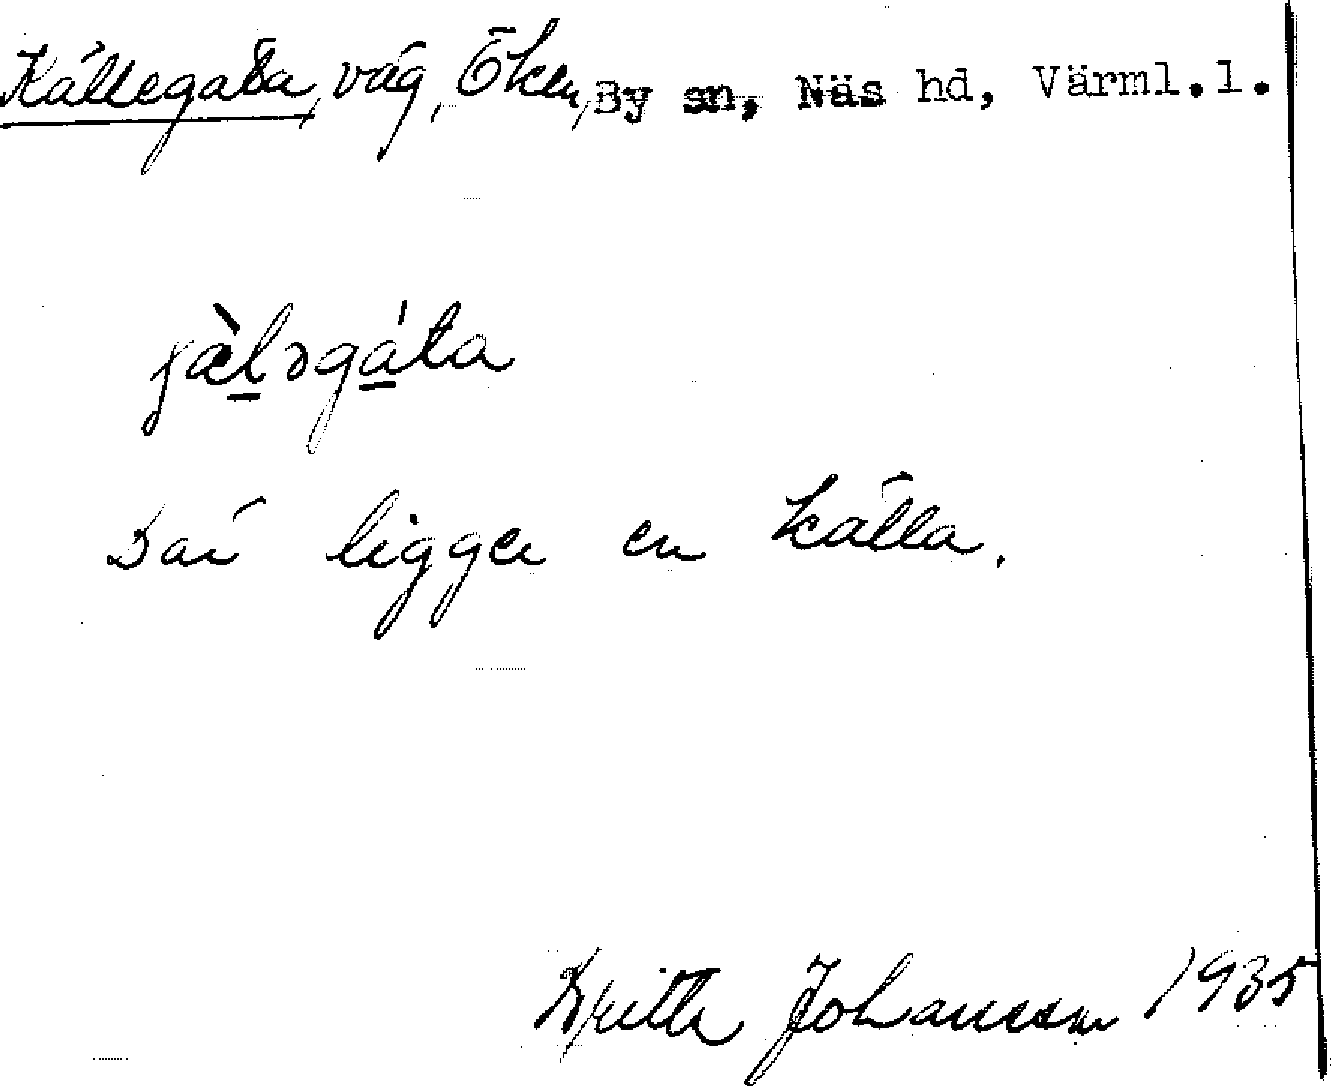 Källegata, väg, Öken, By sn, Näs hd, Värml.l.
jæ̀ləgáta
Där ligger en källa.
Johansson 1935